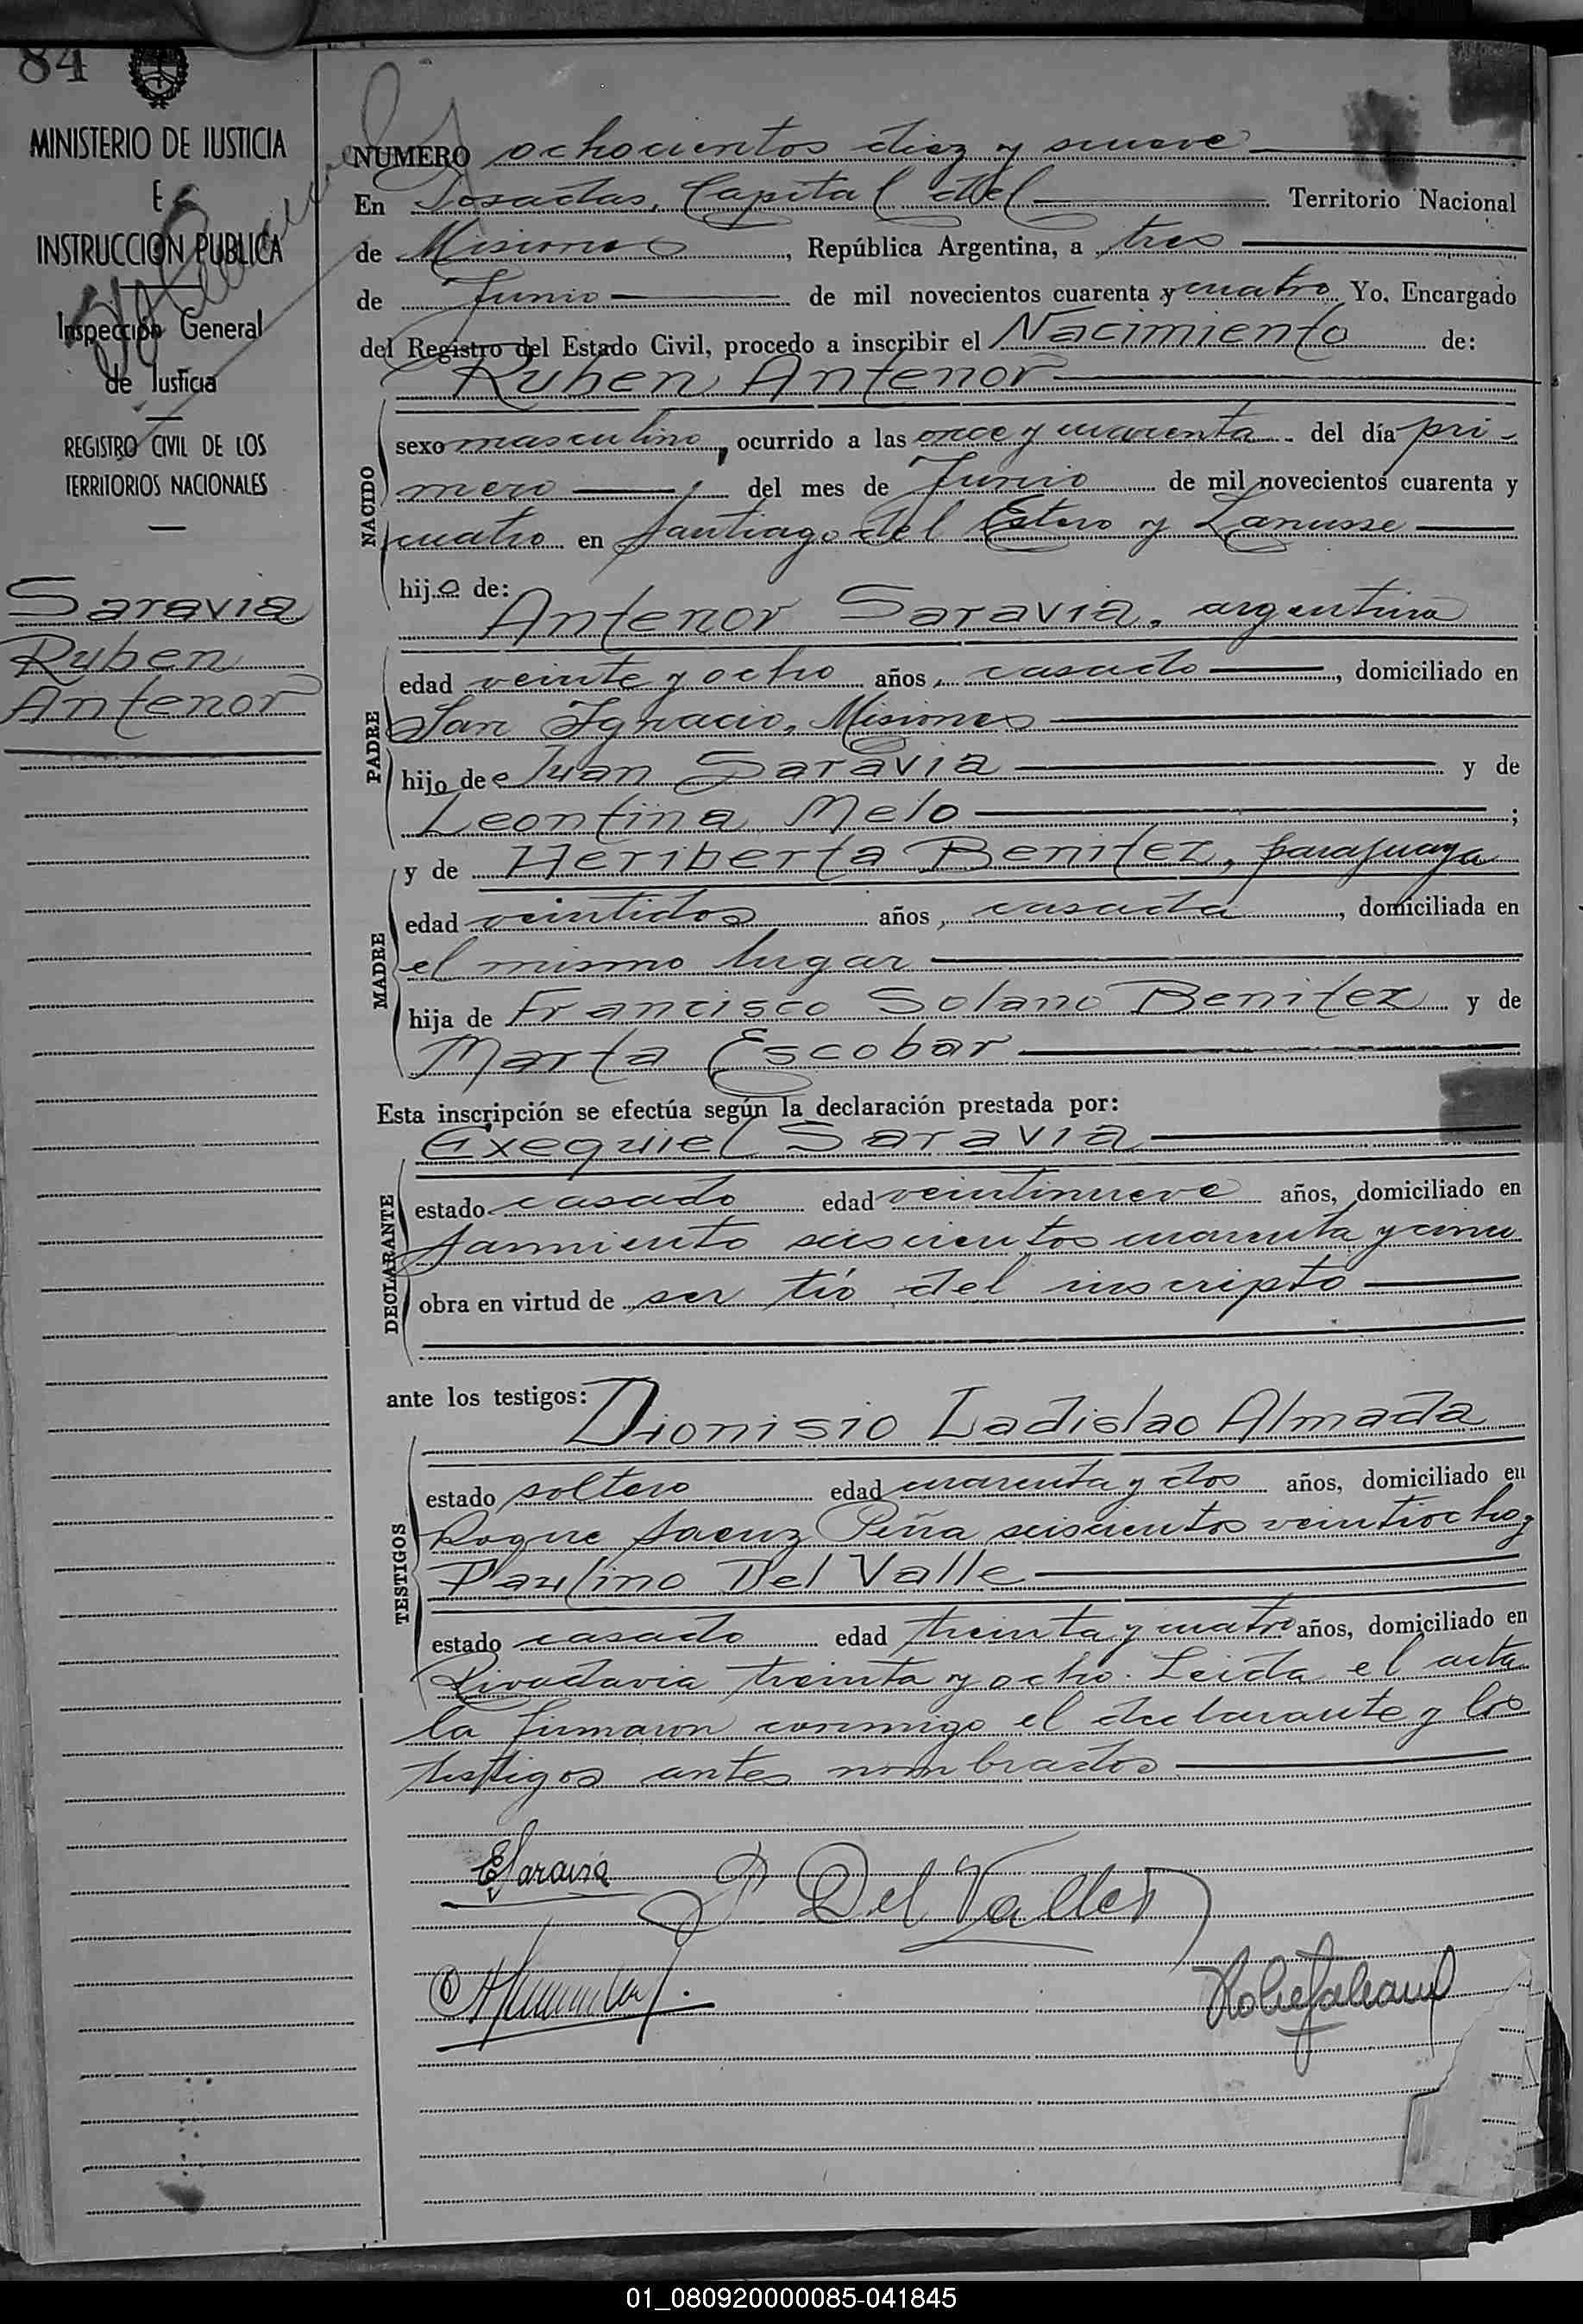 84
MINISTERIO DE JUSTICIA
E
INSTRUCCION PUBLICA
Inspección General
de Justicia
REGISTRO CIVIL DE LOS
TERRITORIOS NACIONALES
Saravia
Ruben
Antenor
NUMERO ochocientos diez y nueve
En Posadas, Capital del Territorio Nacional
de Misiones, República Argentina, a tres
de Junio de mil novecientos cuarenta y cuatro Yo, Encargado
del Registro del Estado Civil, procedo a inscribir el Nacimiento de:
Ruben Antenor
NACIDO
sexo masculino, ocurrido a las once y cuarenta del día pri-
mero, del mes de Junio de mil novecientos cuarenta y
cuatro en Santiago del Estero y Lanusse
hijo de:
Antenor Saravia, argentino
PADRE
edad veinte y ocho años, casado, domiciliado en
San Ignacio, Misiones
hijo de Juan Saravia y de
Leontina Melo;
y de Heriberta Benitez, paraguaya
MADRE
edad veintidos años, casada, domiciliada en
el mismo lugar
hija de Francisco Solano Benitez y de
Marta Escobar
Esta inscripción se efectúa según la declaración prestada por:
Exequiel Saravia
DECLARANTE
estado casado edad veintinueve años, domiciliado en
Sarmiento seiscientos cuarenta y cinco
obra en virtud de ser tío del inscripto
ante los testigos:
Dionisio Ladislao Almada
TESTIGOS
estado soltero edad cuarenta y dos años, domiciliado en
Roque Saenz Peña seiscientos veintiocho y
Paulino Del Valle
estado casado edad treinta y cuatro años, domiciliado en
Rivadavia treinta y ocho. Leida el acta
la firmaron conmigo el declarante y los
testigos antes nombrados
ESaravia
P Del Valle
01_080920000085-041845